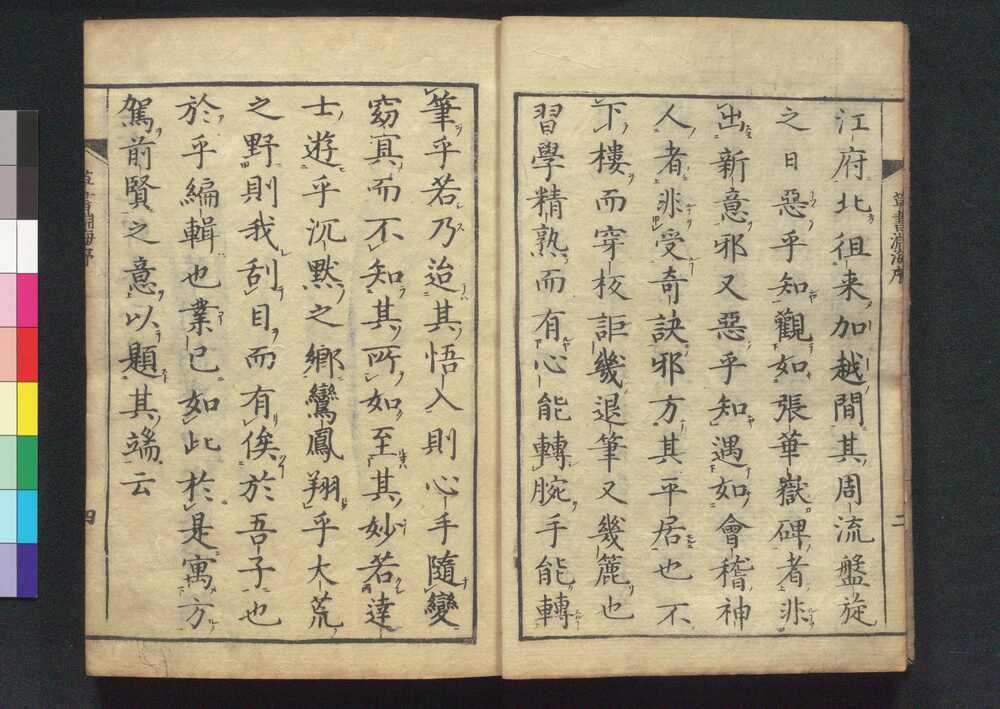 江府北徂来加越間其周流盤旋
之日惡乎知觀如張華嶽碑者非
出新意邪又惡乎知遇如會稽神
人者非受奇訣邪方其平居也不
下樓而穿校詎幾退筆又幾簏也
習學精熟而有心能轉腕手能轉
筆乎若乃迨其悟入則心手隨變
窈冥而不知其所如至其妙若達
士遊乎沉默之鄉鸞鳳翔乎大荒
之野則我刮目而有俟於吾子也
於乎編輯也業已如此於是寓方
駕前賢之意以題其端云
草書淵海序
二
四